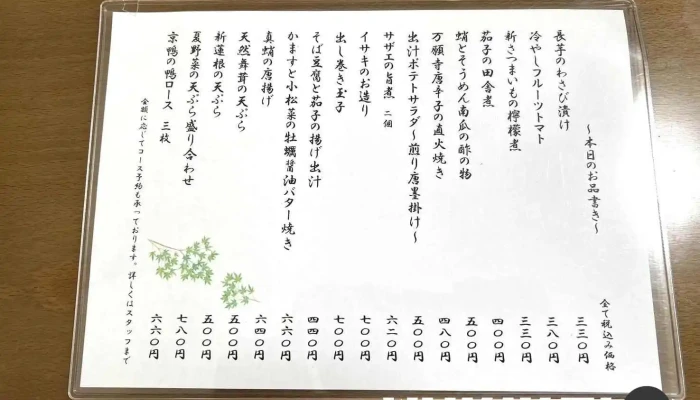 〜本日のお品書き〜
全て税込み価格
長芋のわさび漬け 三三〇円
冷やしフルーツトマト 三八〇円
新さつまいもの檸檬煮 三三〇円
茄子の田舎煮 四〇〇円
蛸とそうめん南瓜の酢の物 五〇〇円
万願寺唐辛子の直火焼き 四八〇円
出汁ポテトサラダ〜煎り唐墨掛け〜 五〇〇円
サザエの旨煮 二個 六二〇円
イサキのお造り 七〇〇円
出し巻き玉子 七〇〇円
そば豆腐と茄子の揚げ出汁 四四〇円
かますと小松菜の牡蠣醤油バター焼き 六六〇円
真蛸の唐揚げ 六四〇円
天然舞茸の天ぷら 五〇〇円
新蓮根の天ぷら 五〇〇円
夏野菜の天ぷら盛り合わせ 七八〇円
京鴨の鴨ロース 三枚 六六〇円
金額に応じてコース予約も承っております。詳しくはスタッフまで